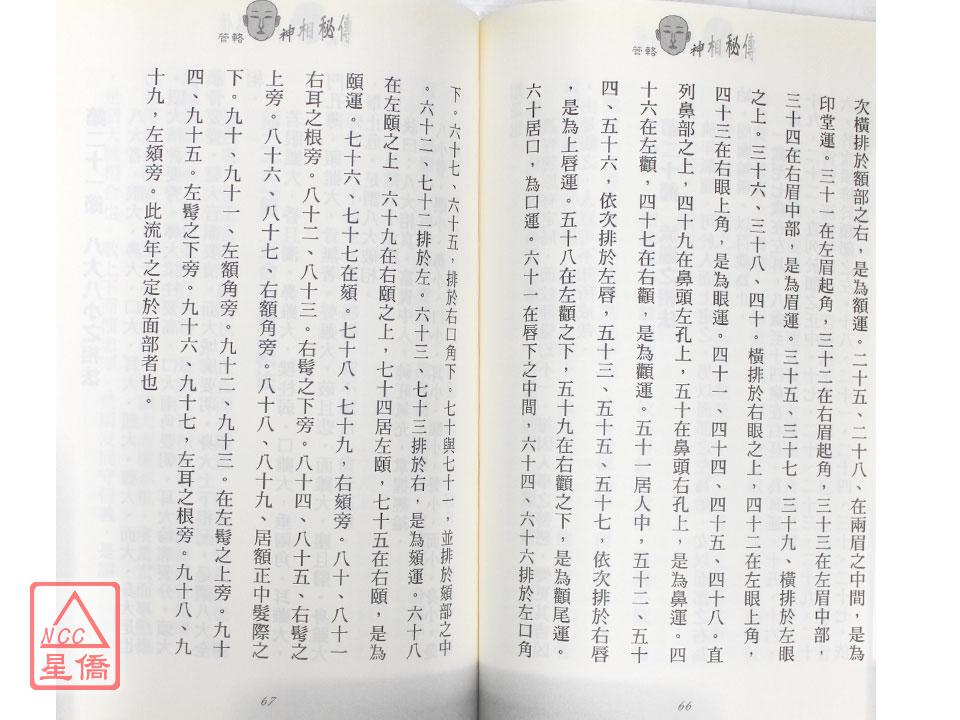 管輅神相秘傳
次橫排於額部之右，是為額運。二十五、二十八、在兩眉之中間，是為
印堂運。三十一在左眉起角，三十二在右眉起角，三十三在左眉中部，
三十四在右眉中部，是為眉運。三十五、三十七、三十九、橫排於左眼
之上。三十六、三十八、四十。橫排於右眼之上，四十二在左眼上角，
四十三在右眼上角，是為眼運。四十一、四十四、四十五、四十八。直
列鼻部之上，四十九在鼻頭左孔上，五十在鼻頭右孔上，是為鼻運。四
十六在左顴，四十七在右顴，是為顴運。五十一居人中，五十二、五十
四、五十六，依次排於左唇，五十三、五十五、五十七，依次排於右唇
，是為上唇運。五十八在左顴之下，五十九在右顴之下，是為顴尾運。
六十居口，為口運。六十一在唇下之中間，六十四、六十六排於左口角
66
管輅神相秘傳
下。六十七、六十五，排於右口角下。七十與七十一，並排於頦部之中
。六十二、七十二排於左。六十三、七十三排於右，是為頦運。六十八
在左頤之上，六十九在右頤之上，七十四居左頤，七十五在右頤，是為
頤運。七十六、七十七在頦。七十八、七十九，右頦旁。八十、八十一
右耳之根旁。八十二、八十三。右鬢之下旁。八十四、八十五、右鬢之
上旁。八十六、八十七、右額角旁。八十八、八十九、居額正中髮際之
下。九十、九十一、左額角旁。九十二、九十三。在左鬢之上旁。九十
四、九十五。左鬢之下旁。九十六、九十七，左耳之根旁。九十八、九
十九，左頦旁。此流年之定於面部者也。
67
NCC
星僑